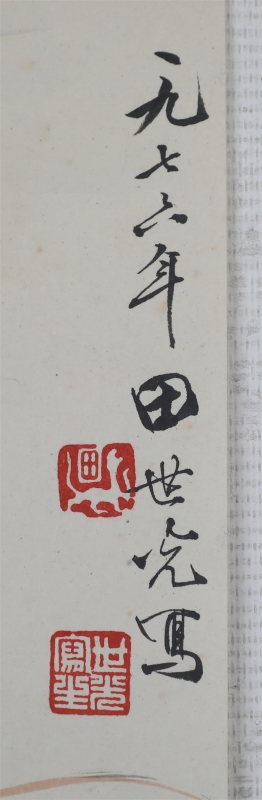 一九七六年田世光写
世光
寫生